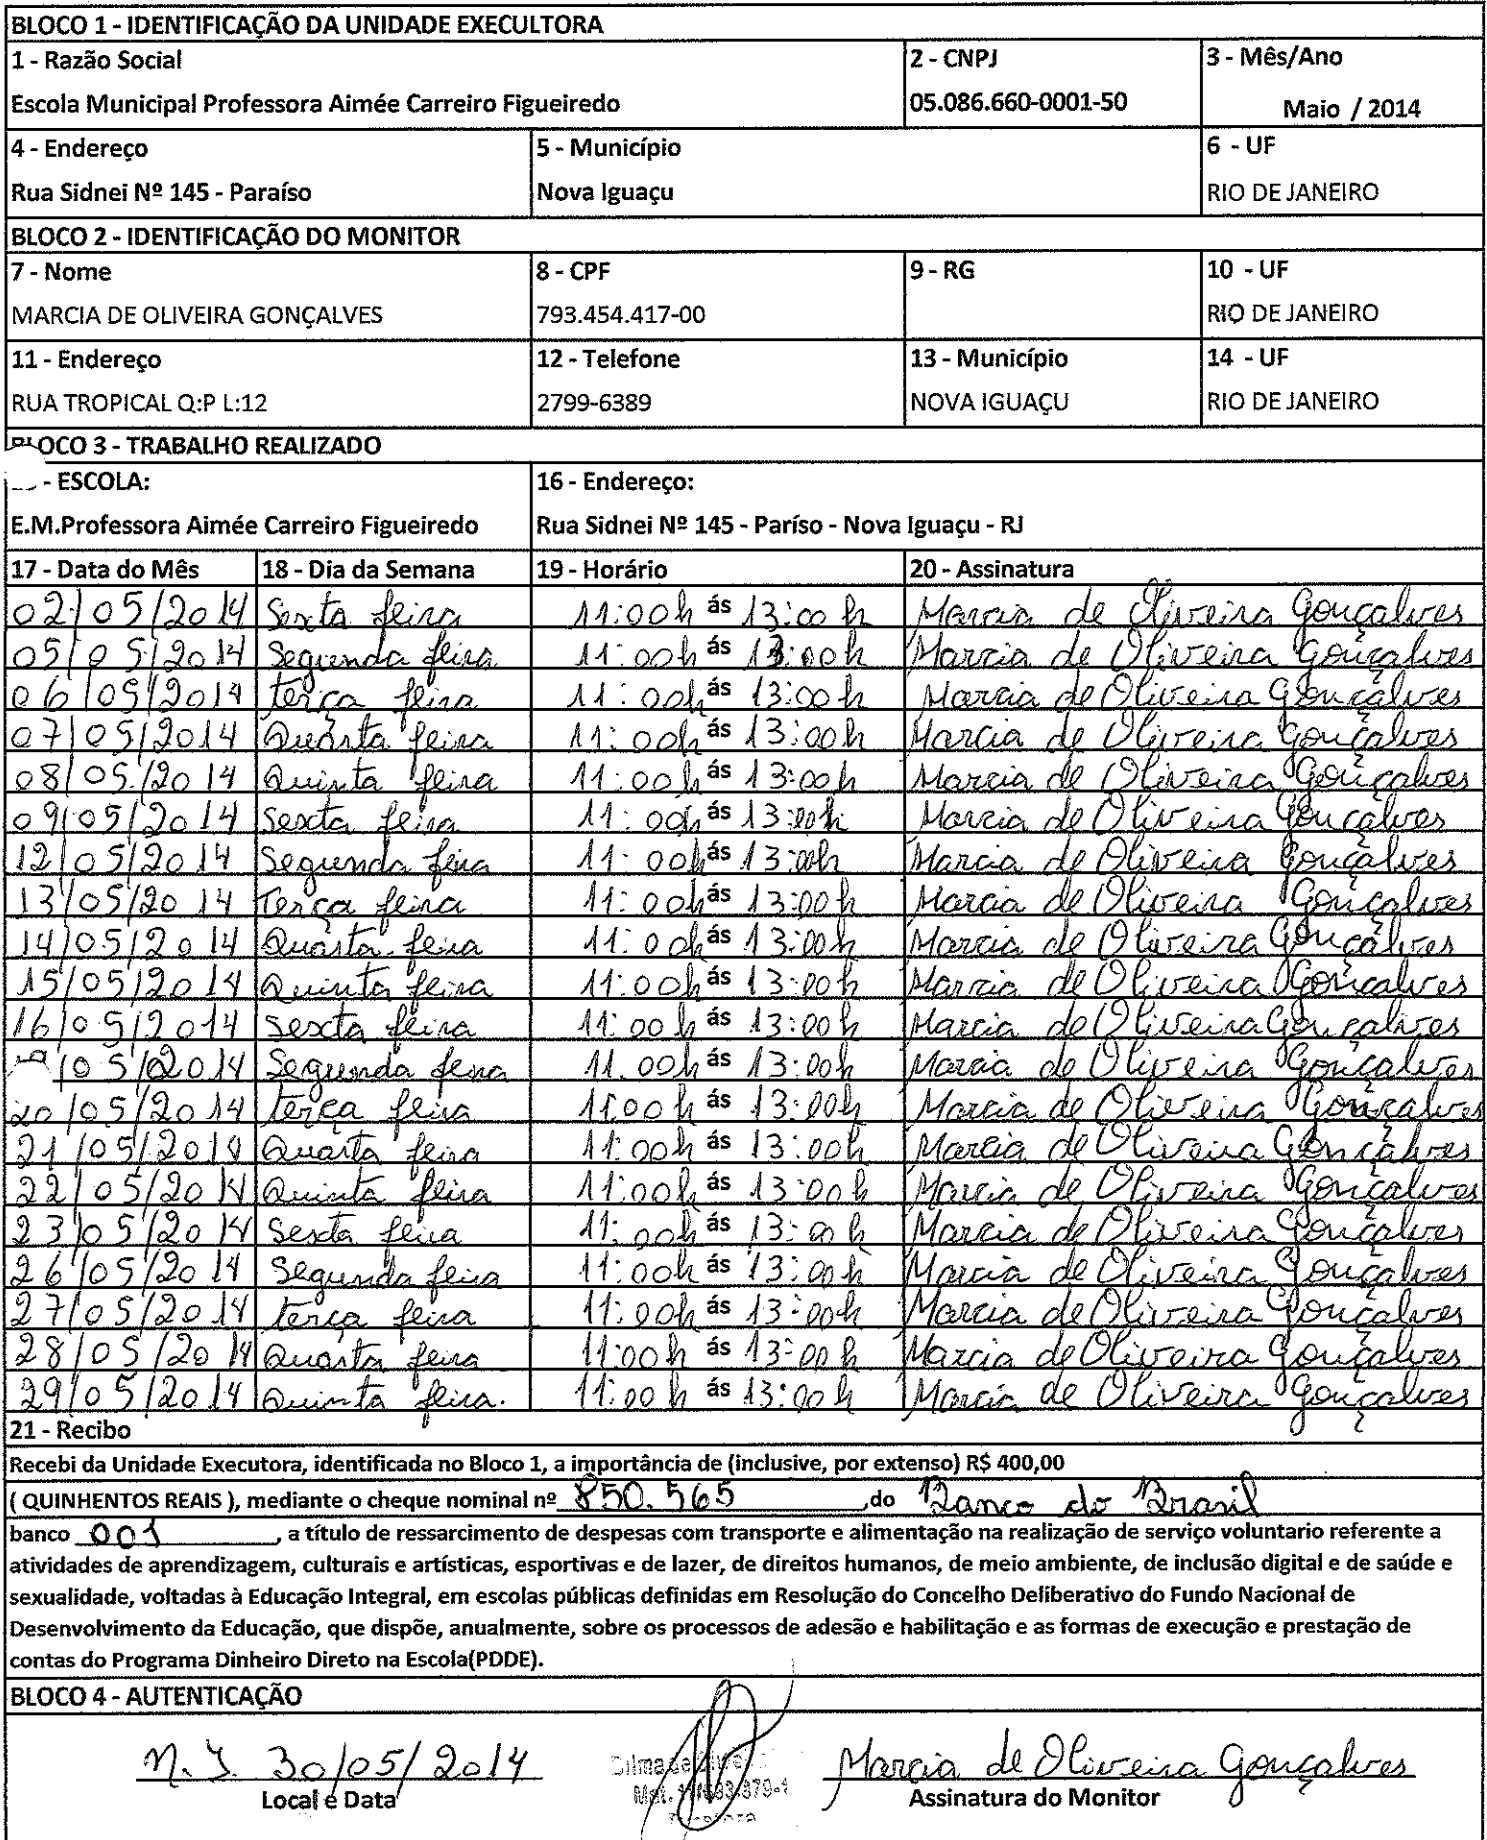 BLOCO 1 - IDENTIFICAÇÃO DA UNIDADE EXECULTORA
1 - Razão Social 2 - CNPJ 3 - Mês/Ano
Escola Municipal Professora Aimée Carreiro Figueiredo 05.086.660-0001-50 Maio / 2014
4 - Endereço 5 - Município 6 - UF
Rua Sidnei Nº 145 - Paraíso Nova Iguaçu RIO DE JANEIRO
BLOCO 2 - IDENTIFICAÇÃO DO MONITOR
7 - Nome 8 - CPF 9 - RG 10 - UF
MARCIA DE OLIVEIRA GONÇALVES 793.454.417-00 RIO DE JANEIRO
11 - Endereço 12 - Telefone 13 - Município 14 - UF
RUA TROPICAL Q:P L:12 2799-6389 NOVA IGUAÇU RIO DE JANEIRO
BLOCO 3 - TRABALHO REALIZADO
- ESCOLA: 16 - Endereço:
E.M.Professora Aimée Carreiro Figueiredo Rua Sidnei Nº 145 - Paríso - Nova Iguaçu - RJ
17 - Data do Mês 18 - Dia da Semana 19 - Horário 20 - Assinatura
02/05/2014 Sexta feira 11:00h ás 13:00h Marcia de Oliveira Gonçalves
05/05/2014 Segunda feira 11:00h ás 13:00h Marcia de Oliveira Gonçalves
06/05/2014 terça feira 11:00h ás 13:00h Marcia de Oliveira Gonçalves
07/05/2014 Quarta feira 11:00h ás 13:00h Marcia de Oliveira Gonçalves
08/05/2014 Quinta feira 11:00h ás 13:00h Marcia de Oliveira Gonçalves
09/05/2014 Sexta feira 11:00h ás 13:00h Marcia de Oliveira Gonçalves
12/05/2014 Segunda feira 11:00h ás 13:00h Marcia de Oliveira Gonçalves
13/05/2014 Terça feira 11:00h ás 13:00h Marcia de Oliveira Gonçalves
14/05/2014 Quarta feira 11:00h ás 13:00h Marcia de Oliveira Gonçalves
15/05/2014 Quinta feira 11:00h ás 13:00h Marcia de Oliveira Gonçalves
16/05/2014 Sexta feira 11:00h ás 13:00h Marcia de Oliveira Gonçalves
/05/2014 Segunda feira 11.00h ás 13:00h Marcia de Oliveira Gonçalves
20/05/2014 terça feira 11:00h ás 13:00h Marcia de Oliveira Gonçalves
21/05/2014 Quarta feira 11:00h ás 13:00h Marcia de Oliveira Gonçalves
22/05/2014 Quinta feira 11:00h ás 13:00h Marcia de Oliveira Gonçalves
23/05/2014 Sexta feira 11:00h ás 13:00h Marcia de Oliveira Gonçalves
26/05/2014 Segunda feira 11:00h ás 13:00h Marcia de Oliveira Gonçalves
27/05/2014 terça feira 11:00h ás 13:00h Marcia de Oliveira Gonçalves
28/05/2014 Quarta feira 11:00h ás 13:00h Marcia de Oliveira Gonçalves
29/05/2014 Quinta feira. 11:00h ás 13:00h Marcia de Oliveira Gonçalves
21 - Recibo
Recebi da Unidade Executora, identificada no Bloco 1, a importância de (inclusive, por extenso) R$ 400,00
( QUINHENTOS REAIS ), mediante o cheque nominal nº 850.565 ,do Banco do Brasil
banco 001 , a título de ressarcimento de despesas com transporte e alimentação na realização de serviço voluntario referente a
atividades de aprendizagem, culturais e artísticas, esportivas e de lazer, de direitos humanos, de meio ambiente, de inclusão digital e de saúde e
sexualidade, voltadas à Educação Integral, em escolas públicas definidas em Resolução do Concelho Deliberativo do Fundo Nacional de
Desenvolvimento da Educação, que dispõe, anualmente, sobre os processos de adesão e habilitação e as formas de execução e prestação de
contas do Programa Dinheiro Direto na Escola(PDDE).
BLOCO 4 - AUTENTICAÇÃO
N.I. 30/05/2014 Marcia de Oliveira Gonçalves
Local e Data Mat. Assinatura do Monitor